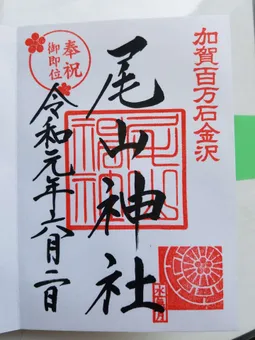 加賀百万石金沢
尾山神社
奉祝
御即位
令和元年六月二日